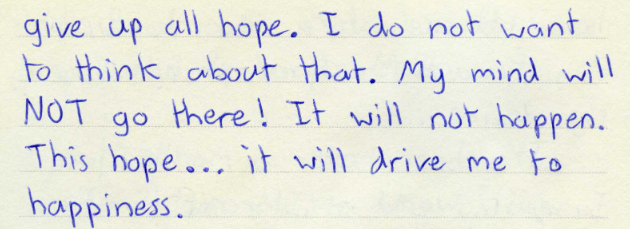 give up all hope. I do not want
to think about that. My mind will
NOT go there! It will not happen.
This hope... it will drive me to
happiness.